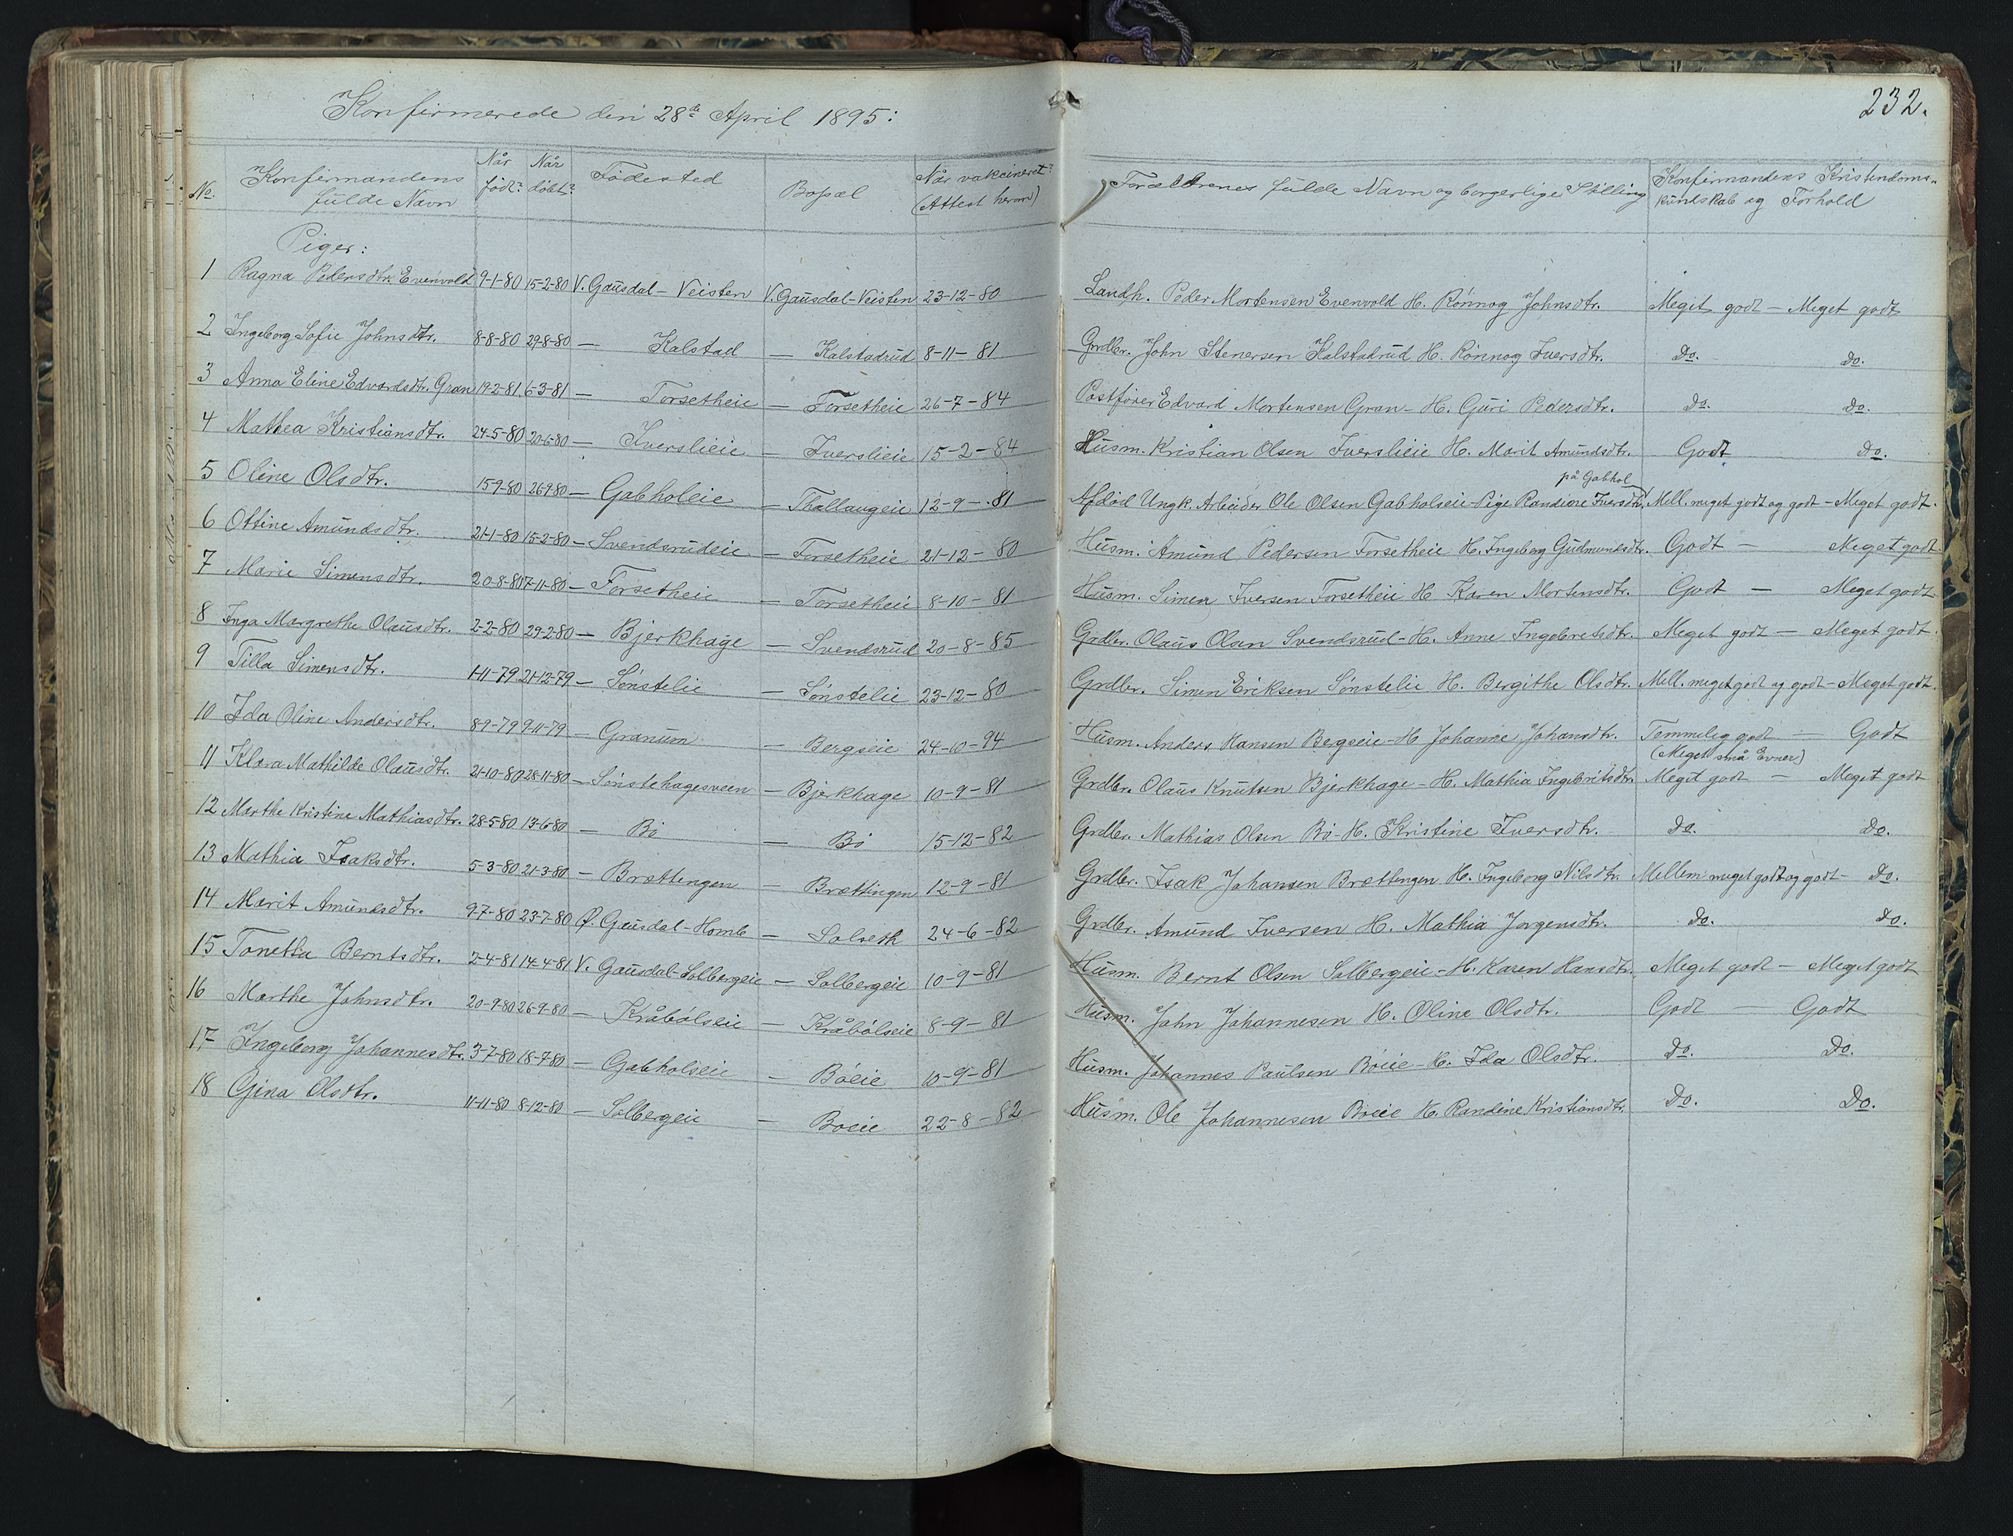 Konfirmerede den 28de April 1895:
232.
No. Konfirmandens fulde Navn Når født? Når døbt? Fødested Bopæl Når vakcineret? (Attest herom) Forældrenes fulde Navn og borgerlige Stilling Konfirmandens Kristendoms-kundskab og Forhold
Piger:
1 Ragna Pedersdtr. Evenvold 9-1-80 15-2-80 V. Gausdal - Veisten V. Gausdal - Veisten 23-12-80 Landh. Peder Mortensen Evenvold H. Rønnog Johnsdtr. Meget godt - Meget godt
2 Ingeborg Sofie Johnsdtr. 8-8-80 29-8-80 — Kalstad — Kalstadrud 8-11-81 Grdbr. John Stenersen Kalstadrud H. Rønnog Iversdtr. Do. Do.
3 Anna Eline Edvardsdtr. Gran 19-2-81 6-3-81 — Forsetheie — Forsetheie 26-7-84 Postfører Edvard Mortensen Gran - H. Guri Pedersdtr. Do. Do.
4 Mathea Kristiansdtr. 24-5-80 20-6-80 — Iverslieie — Iverslieie 15-2-84 Husm. Kristian Olsen Iverslieie H. Marit Amundsdtr. Godt Do.
på Gabhol
5 Oline Olsdtr. 15-9-80 26-9-80 — Gabholeie — Thallaugeie 12-9-81 Afdød Ungk. Arbeider Ole Olsen Gabholseie - Pige Randine Iversdtr. Mell. meget godt og godt - Meget godt.
6 Ottine Amundsdtr. 21-1-80 15-2-80 — Svendsrudeie — Forsetheie 21-12-80 Husm. Amund Pedersen Forsetheie H. Ingeborg Gudmundsdtr. Godt — Meget godt
7 Marie Simensdtr. 20-8-80 7-11-80 — Forsetheie — Forsetheie 8-10-81 Husm. Simen Iversen Forsetheie H. Karen Mortensdtr. Godt — Meget godt
8 Inga Margrethe Olausdtr. 2-2-80 29-2-80 — Bjerkhage — Svendsrud 20-8-85 Grdbr. Olaus Olsen Svendsrud - H. Anne Ingebretsdtr. Meget godt — Meget godt.
9 Tilla Simensdtr. 1-11-79 21-12-79 — Sønstelie — Sønstelie 23-12-80 Grdbr. Simen Eriksen Sønstelie H. Bergithe Olsdtr. Mell. meget godt og godt - Meget godt.
10 Ida Oline Andersdtr. 8-9-79 9-11-79 — Granum — Bergseie 24-10-94 Husm. Anders Hansen Bergseie - H. Johanne Johansdtr. Temmelig godt — Godt
(Meget små Evner)
11 Klara Mathilde Olausdtr. 21-10-80 28-11-80 — Sønstehagesveen — Bjerkhage 10-9-81 Grdbr. Olaus Knutsen Bjerkhage - H. Mathia Ingebritsdtr. Meget godt — Meget godt
12 Marthe Kristine Mathiasdtr. 28-5-80 13-6-80 — Bø — Bø 15-12-82 Grdbr. Mathias Olsen Bø - H. Kristine Iversdtr. Do. Do.
13 Mathia Isaksdtr. 5-3-80 21-3-80 — Brættengen — Brættingen 12-9-81 Grdbr. Isak Johansen Brættengen H. Ingeborg Nilsdtr. Mellem meget godt og godt - Do.
14 Marit Amundsdtr. 9-7-80 23-7-80 Ø. Gausdal - Homb — Solseth 24-6-82 Grdbr. Amund Iversen H. Mathia Jørgensdtr. Do. Do.
15 Tonetta Berntsdtr. 2-4-81 14-4-81 V. Gausdal - Solbergeie — Solbergeie 10-9-81 Husm. Bernt Olsen Solbergeie - H. Karen Hansdtr. Meget godt — Meget godt
16 Marthe Johnsdtr. 20-9-80 26-9-80 — Kråbølseie — Kråbølseie 8-9-81 Husm. John Johannesen H. Oline Olsdtr. Godt — Godt
17 Ingeborg Johannesdtr. 3-7-80 18-7-80 — Gabholseie — Bøeie 10-9-81 Husm. Johannes Paulsen Bøeie - H. Ida Olsdtr. Do. Do.
18 Gina Olsdtr. 11-11-80 8-12-80 — Solbergeie — Bøeie 22-8-82 Husm. Ole Johannesen Bøeie H. Randine Kristiansdtr. Do. Do.